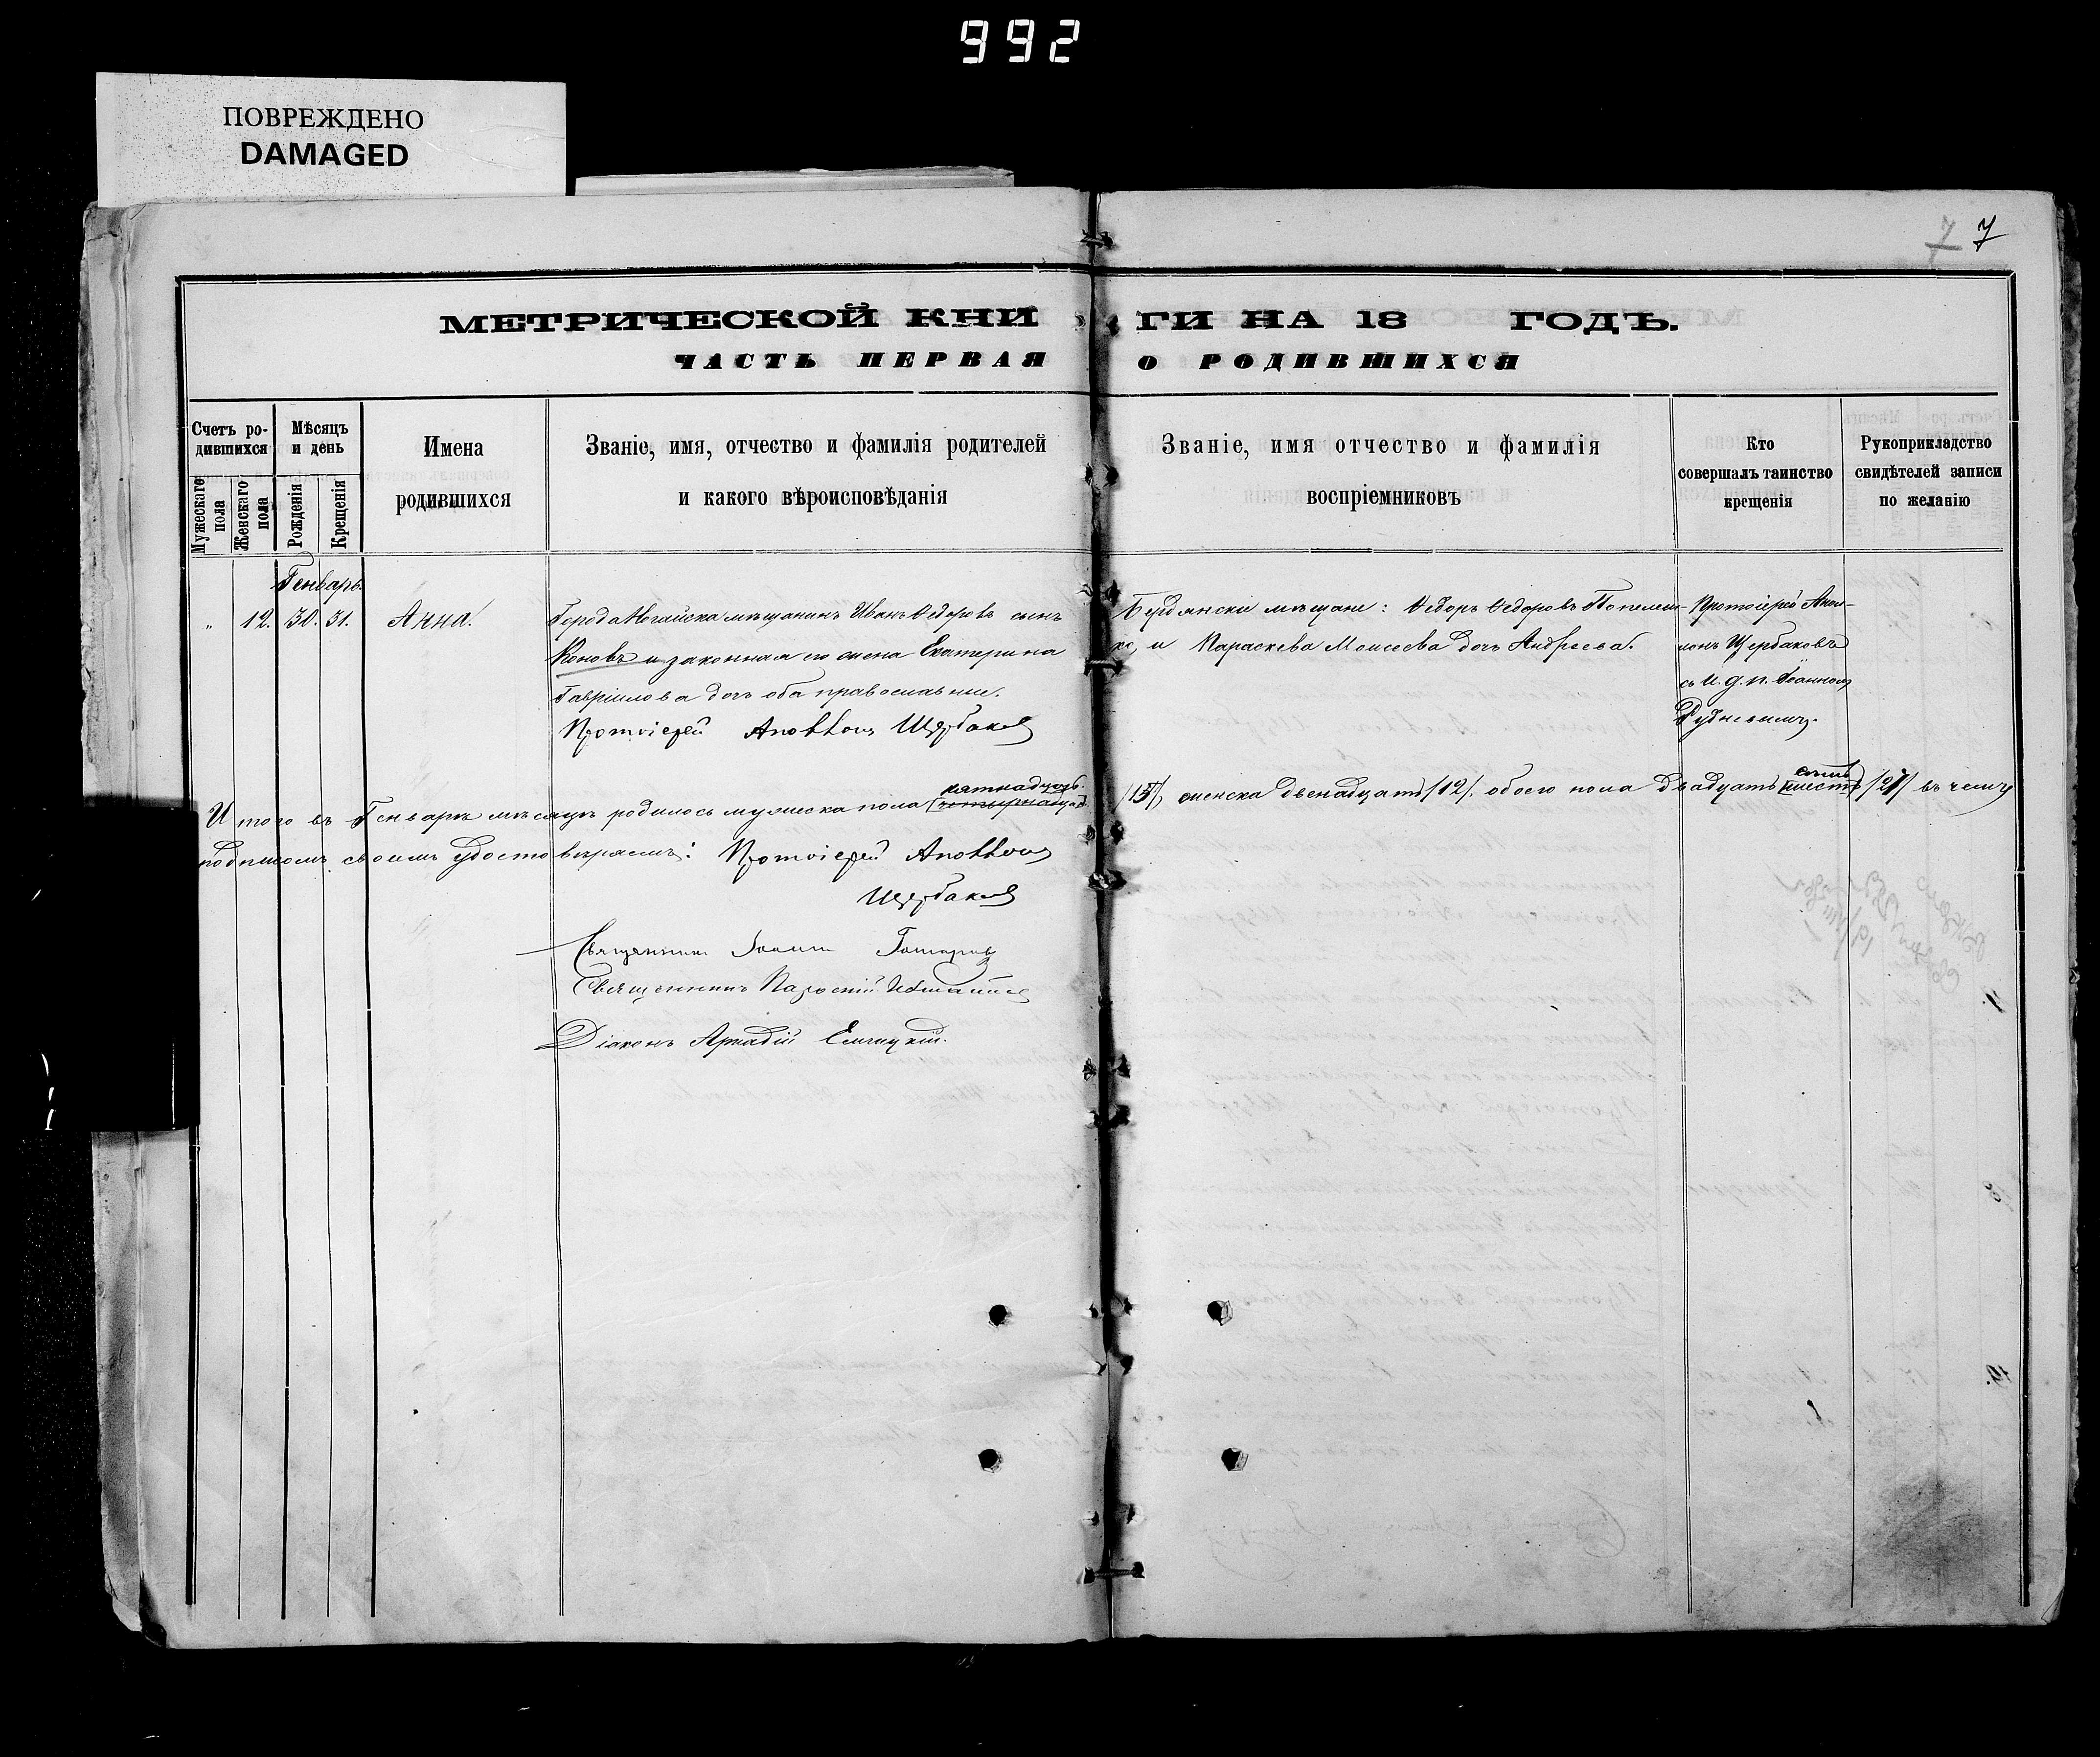 992
ПОВРЕЖДЕНО
DAMAGED
7 7
МЕТРИЧЕСКОЙ КНИ ГИ НА 18 ГОДЪ.
ЧАСТЬ ПЕРВАЯ О РОДИВШИХСЯ
Счетъ ро-
дившихся
Мужескаго пола
Женскаго пола
Мѣсяцъ
и день
Рожденія
Крещенія
Имена
родившихся
Званіе, имя, отчество и фамилія родителей
и какого вѣроисповѣданія
Званіе, имя отчество и фамилія
воспріемниковъ
Кто
совершалъ таинство
крещенія
Рукоприкладство
свидѣтелей записи
по желанію
Генварь
" 12. 30. 31. Анна.
Города Ногайска мѣщанинъ Иванъ Ѳедоровъ сынъ
Коновъ и законная его жена Екатерина
Гавріилова дочь оба православные.
Протоіерей Аполлонъ Щербаковъ
Бердянски мѣщане: Ѳедоръ Ѳедоровъ
и Параскева Моисеева дочь Андреева.
Протоіерей Апол-
лонъ Щербаковъ
съ и. д. п. Іоанномъ
Рудневымъ.
пятнадцать
Итого въ Генварѣ мѣсяцѣ родилось мужеска пола (четырнадцать) /15/, женска двенадцать /12/. обоего пола двадцать (шесть) /27/ въ чемъ
семь
подписомъ своимъ удостовѣряемъ: Протоіерей Аполлонъ
Щербаковъ
Священникъ Іоаннъ
Священникъ
Діаконъ Аркадій